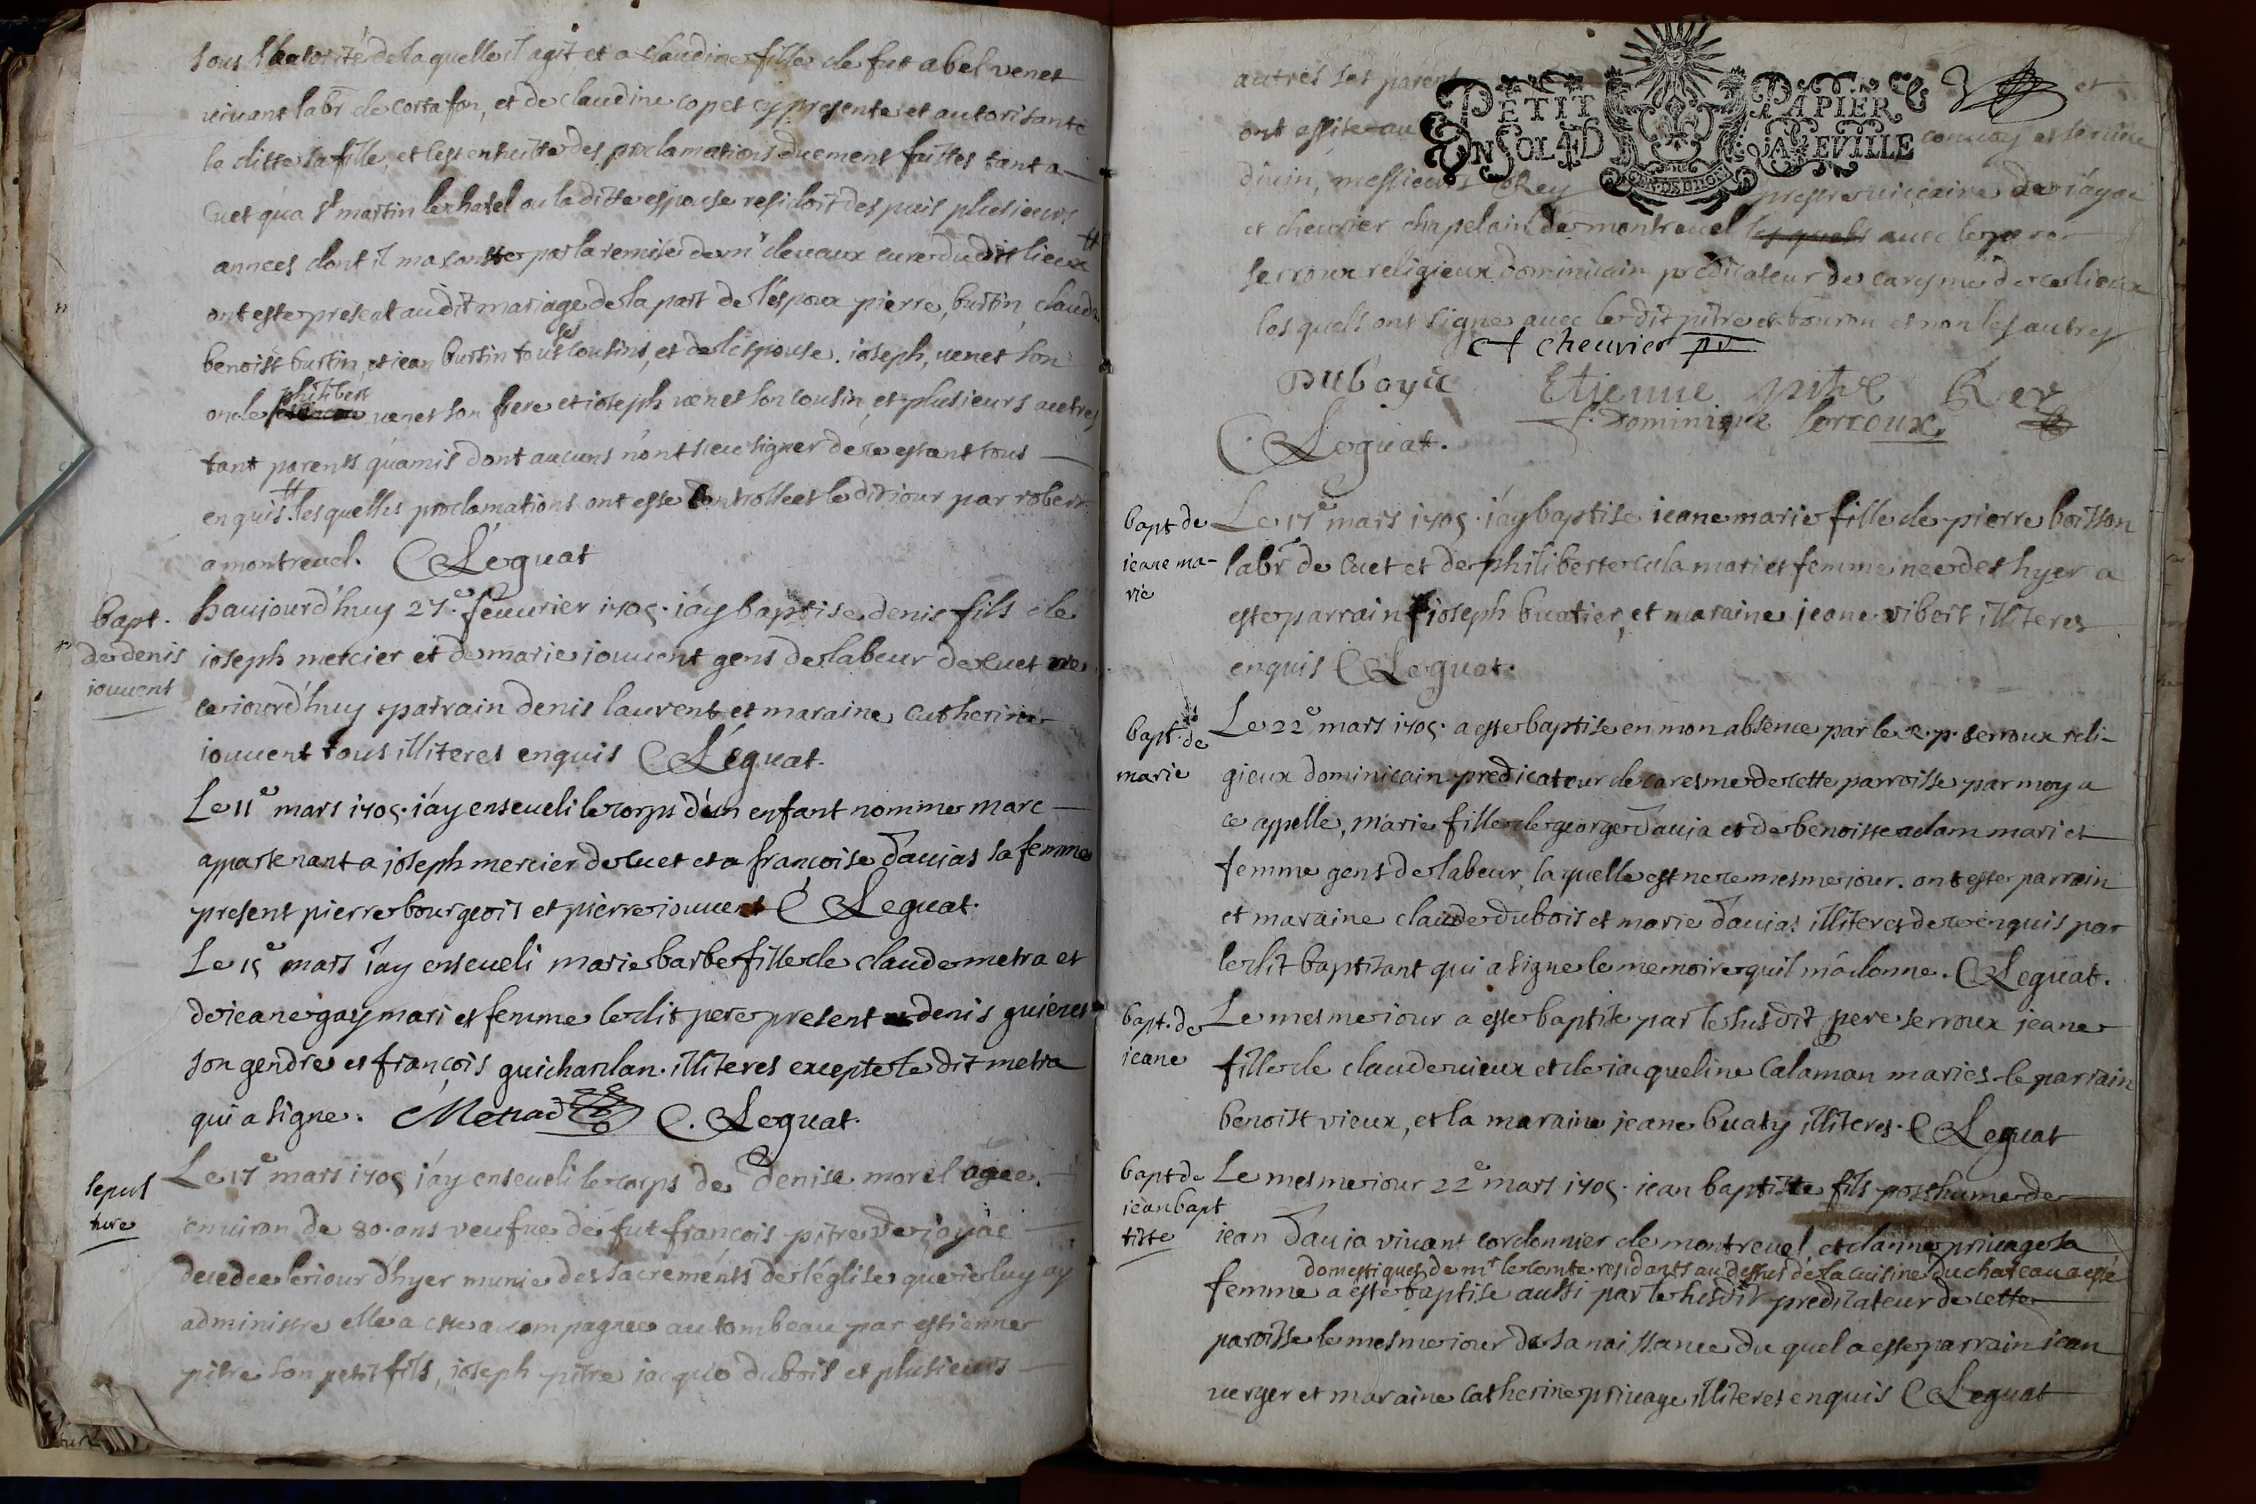 sous l'authorité de laquelle il agit, et a claudine fille de fut abel venet
vivant labr. de cortafon, et de claudine copet cy presente et autorisante
la ditte sa fille, et c'est ensuitte des proclamations duement faittes tant a
Cuet qu'a st martin le chatel ou la ditte espouse residoit des puis plusieurs
annees dont il ma conste par la remise de mr. devaux cure du dit lieux
ont este present au dit mariage de la part de l'espoux pierre, burtin, claude
benoist burtin, et jean burtin tous ses cousins, et de l'espouse. ioseph, venet son
oncle philibert venet son frere et ioseph venet son cousin, et plusieurs autres
tant parents qu'amis dont aucuns n'ont sceu signer de ce estant tous
enquis. lesquelles proclamations ont esté controllees le dit iour par robert
a montrevel. C Leguat
bapt. de denis iouvent
haujourd'huy 27.e feuvrier 1705. i'ay baptise denis fils de
ioseph mercier et de marie iouvent gens de labeur de cuet ne
ce iourd'huy parrain denis laurent et maraine catherine
iouvent tous illiteres enquis C Leguat.
Le 11e mars 1705. i'ay enseueli le corps d'un enfant nomme marc
appartenant a joseph mercier de cuet et a francoise daujas sa femme
present pierre bourgeois et pierre iouuent C Leguat.
Le 15e mars iay enseueli marie barbe fille de claude metra et
de ieane gay mari et femme le dit pere present denis guienet
son gendre et françois guichardan. illiteres excepte le dit metra
qui a signe. Metrad C. Leguat.
sepulture
Le 17e mars 1705 i'ay enseueli le corps de denise morel agee.
environ de 80. ans veufue de fut francois pitre de iayac
decedee le iour d'hyer munie des sacréments de l'église que ie luy ay
administre elle a este accompagnee au tombeau par estienne
pitre son petit fils, ioseph pitre iacque dubois et plusieurs
autres ses parents et
ont assiste au convoy et service
divin, messieurs Rey prestre viccaire de iayac
et cheurier chapelain de montreuel lesquels auec le pere
serroux religieux dominicain predicateur de caresme de ce lieux
les quels ont signe auec le dit pitre et bouron et non les autres
PETIT PAPIER
UN SOL 4 D LA FEVILLE
GEN. DE DIJON
cheurier ptr
Duboyce Etienne pitre Rey
f. Dominique serroux
C Leguat.
bapt de ieane marie
Le 17e mars 1705. i'ay baptise ieane marie fille de pierre boisson
labr de cuet et de philiberte cula mari et femme nee des hyer a
este parrain joseph buatier, et maraine jeane vibert illiteres
enquis C Leguat.
bapt. de marie
Le 22e mars 1705. a este baptise en mon absence par le r. p. serroux reli-
gieux dominicain predicateur de caresme de cette parroisse par moy a
ce appelle, marie fille de george dauja et de benoiste adam mari et
femme gens de labeur, la quelle est nee ce mesme iour. ont este parrain
et maraine claude dubois et marie daujas illiteres de ce enquis par
le dit baptisant qui a signe le memoire quil m'a donne. C Leguat.
bapt. de ieane
Le mesme iour a este baptise par le susdit pere serroux jeane
fille de claude vieux et de iacqueline Calaman maries le parrain
benoist vieux, et la maraine jeane buaty illiteres. C Leguat
bapt de jean baptiste
Le mesme iour 22e mars 1705. iean baptiste fils posthume de
iean dauja vivant cordonnier de montreuel, et danne privage sa
domestiques de mr le comte residants au dessus de la cuisine du chateau a esté
femme a este baptise aussi par le susdit predicateur de cette
paroisse le mesme iour de sa naissance du quel a este parrain iean
verger et maraine catherine privage illiteres enquis C Leguat